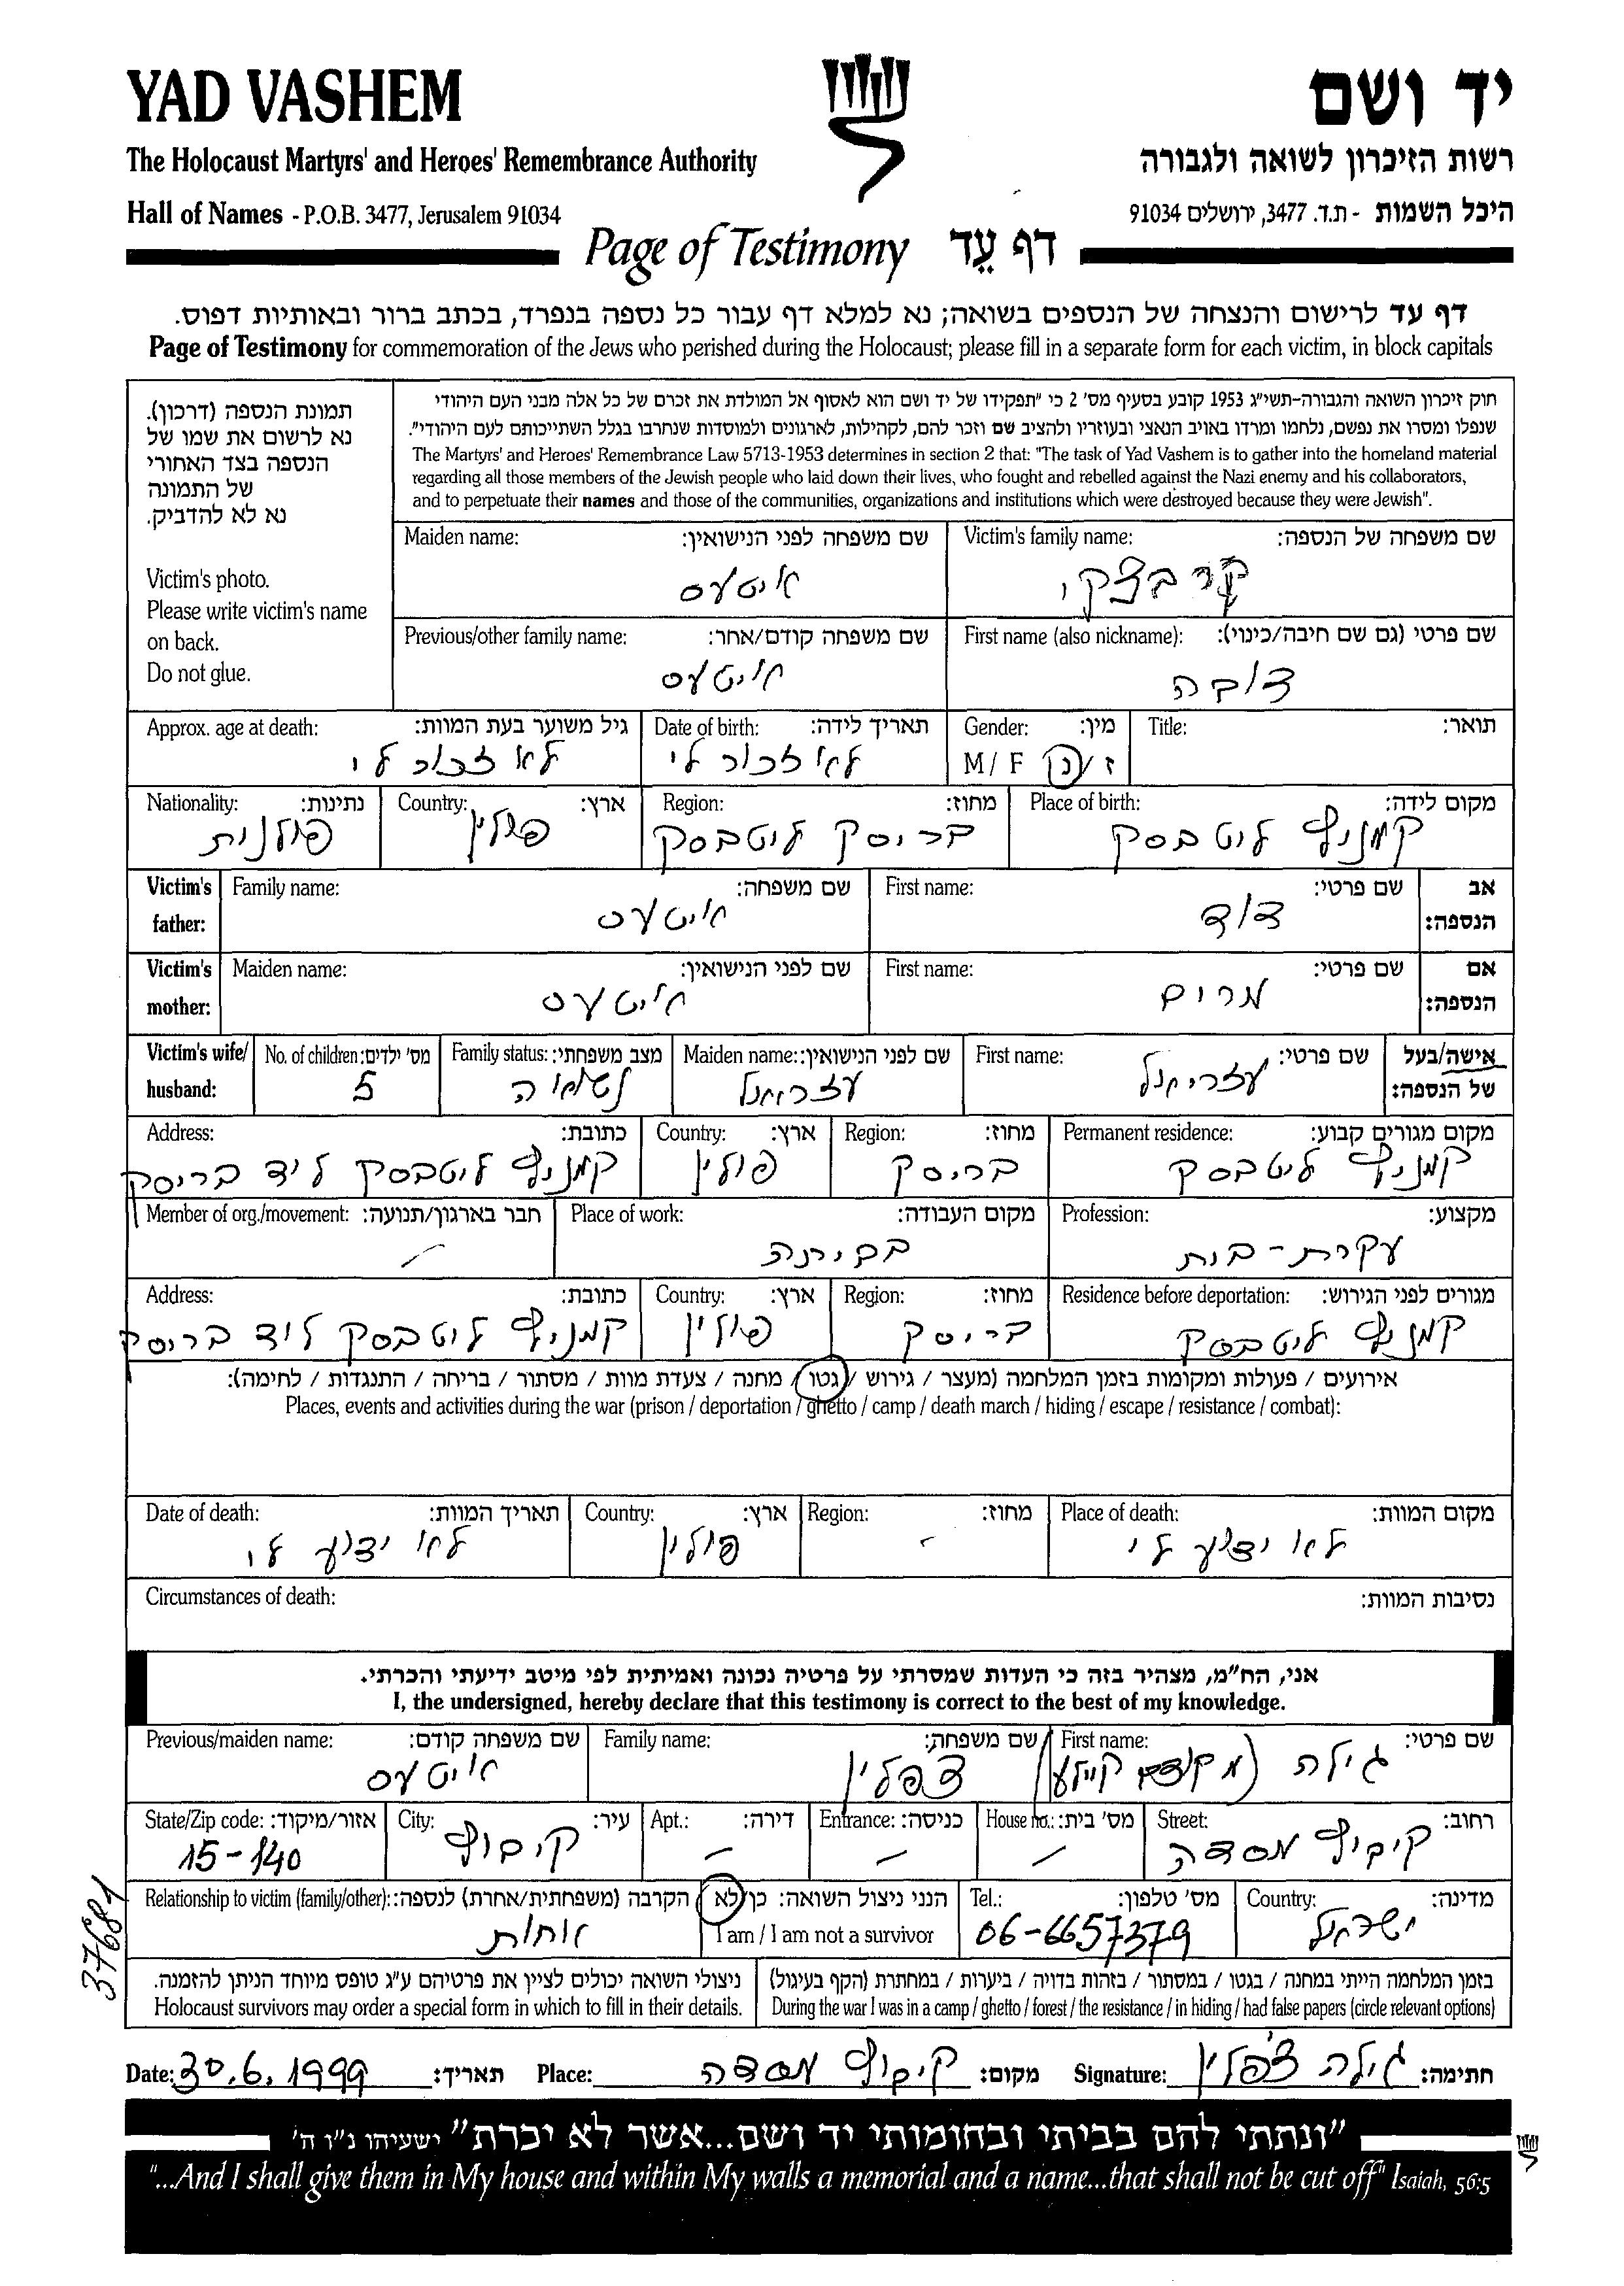 YAD VASHEM
יד ושם
The Holocaust Martyrs' and Heroes' Remembrance Authority
רשות הזיכרון לשואה ולגבורה
Hall of Names - P.O.B. 3477, Jerusalem 91034
היכל השמות - ת.ד. 3477, ירושלים 91034
Page of Testimony דף עֵד
דף עד לרישום והנצחה של הנספים בשואה; נא למלא דף עבור כל נספה בנפרד, בכתב ברור ובאותיות דפוס.
Page of Testimony for commemoration of the Jews who perished during the Holocaust; please fill in a separate form for each victim, in block capitals
תמונת הנספה (דרכון).
נא לרשום את שמו של
הנספה בצד האחורי
של התמונה
נא לא להדביק.
Victim's photo.
Please write victim's name
on back.
Do not glue.
חוק זיכרון השואה והגבורה-תשי"ג 1953 קובע בסעיף מס' 2 כי "תפקידו של יד ושם הוא לאסוף אל המולדת את זכרם של כל אלה מבני העם היהודי
שנפלו ומסרו את נפשם, נלחמו ומרדו באויב הנאצי ובעוזריו ולהציב שם וזכר להם, לקהילות, לארגונים ולמוסדות שנחרבו בגלל השתייכותם לעם היהודי".
The Martyrs' and Heroes' Remembrance Law 5713-1953 determines in section 2 that: "The task of Yad Vashem is to gather into the homeland material
regarding all those members of the Jewish people who laid down their lives, who fought and rebelled against the Nazi enemy and his collaborators,
and to perpetuate their names and those of the communities, organizations and institutions which were destroyed because they were Jewish".
Victim's family name: שם משפחה של הנספה:
קרבצקי
Maiden name: שם משפחה לפני הנישואין:
איטעס
First name (also nickname): שם פרטי (גם שם חיבה/כינוי):
דובה
Previous/other family name: שם משפחה קודם/אחר:
איטעס
Title: תואר:
Gender: מין:
M / F ז / נ
Date of birth: תאריך לידה:
לא זכור לי
Approx. age at death: גיל משוער בעת המוות:
לא זכור לי
Place of birth: מקום לידה:
קמניץ ליטבסק
Region: מחוז:
בריסק ליטבסק
Country: ארץ:
פולין
Nationality: נתינות:
פולנית
Victim's father: אב הנספה:
First name: שם פרטי:
דוד
Family name: שם משפחה:
איטעס
Victim's mother: אם הנספה:
First name: שם פרטי:
מרים
Maiden name: שם לפני הנישואין:
איטעס
Victim's wife/husband: אישה/בעל של הנספה:
First name: שם פרטי:
עזריאל
Maiden name: שם לפני הנישואין:
עזריאל
Family status: מצב משפחתי:
נשואה
No. of children: מס' ילדים:
5
Permanent residence: מקום מגורים קבוע:
קמניץ ליטבסק
Region: מחוז:
בריסק
Country: ארץ:
פולין
Address: כתובת:
קמניץ ליטבסק ליד בריסק
Profession: מקצוע:
עקרת-בית
Place of work: מקום העבודה:
בביתה
Member of org./movement: חבר בארגון/תנועה:
-
Residence before deportation: מגורים לפני הגירוש:
קמניץ ליטבסק
Region: מחוז:
בריסק
Country: ארץ:
פולין
Address: כתובת:
קמניץ ליטבסק ליד בריסק
אירועים / פעולות ומקומות בזמן המלחמה (מעצר / גירוש / גטו / מחנה / צעדת מוות / מסתור / בריחה / התנגדות / לחימה):
Places, events and activities during the war (prison / deportation / ghetto / camp / death march / hiding / escape / resistance / combat):
Place of death: מקום המוות:
לא ידוע לי
Region: מחוז:
-
Country: ארץ:
פולין
Date of death: תאריך המוות:
לא ידוע לי
Circumstances of death: נסיבות המוות:
אני, הח"מ, מצהיר בזה כי העדות שמסרתי על פרטיה נכונה ואמיתית לפי מיטב ידיעתי והכרתי.
I, the undersigned, hereby declare that this testimony is correct to the best of my knowledge.
First name: שם פרטי:
גילה
Family name: שם משפחה:
צפלין
Previous/maiden name: שם משפחה קודם:
איטעס
Street: רחוב:
קיבוץ מסדה
House no.: מס' בית:
-
Entrance: כניסה:
-
Apt.: דירה:
-
City: עיר:
קיבוץ
State/Zip code: אזור/מיקוד:
15-140
Country: מדינה:
ישראל
Tel.: מס' טלפון:
06-6657379
הנני ניצול השואה: כן/לא
I am / I am not a survivor
Relationship to victim (family/other): הקרבה (משפחתית/אחרת) לנספה:
אחות
בזמן המלחמה הייתי במחנה / בגטו / במסתור / בזהות בדויה / ביערות / במחתרת (הקף בעיגול)
During the war I was in a camp / ghetto / forest / the resistance / in hiding / had false papers (circle relevant options)
ניצולי השואה יכולים לציין את פרטיהם ע"ג טופס מיוחד הניתן להזמנה.
Holocaust survivors may order a special form in which to fill in their details.
37681
Date: 30.6.1999 תאריך: Place: קיבוץ מסדה מקום: Signature: גילה צ'פלין חתימה:
"ונתתי להם בביתי ובחומותי יד ושם...אשר לא יכרת" ישעיהו נ"ו ה'
"...And I shall give them in My house and within My walls a memorial and a name...that shall not be cut off" Isaiah, 56:5